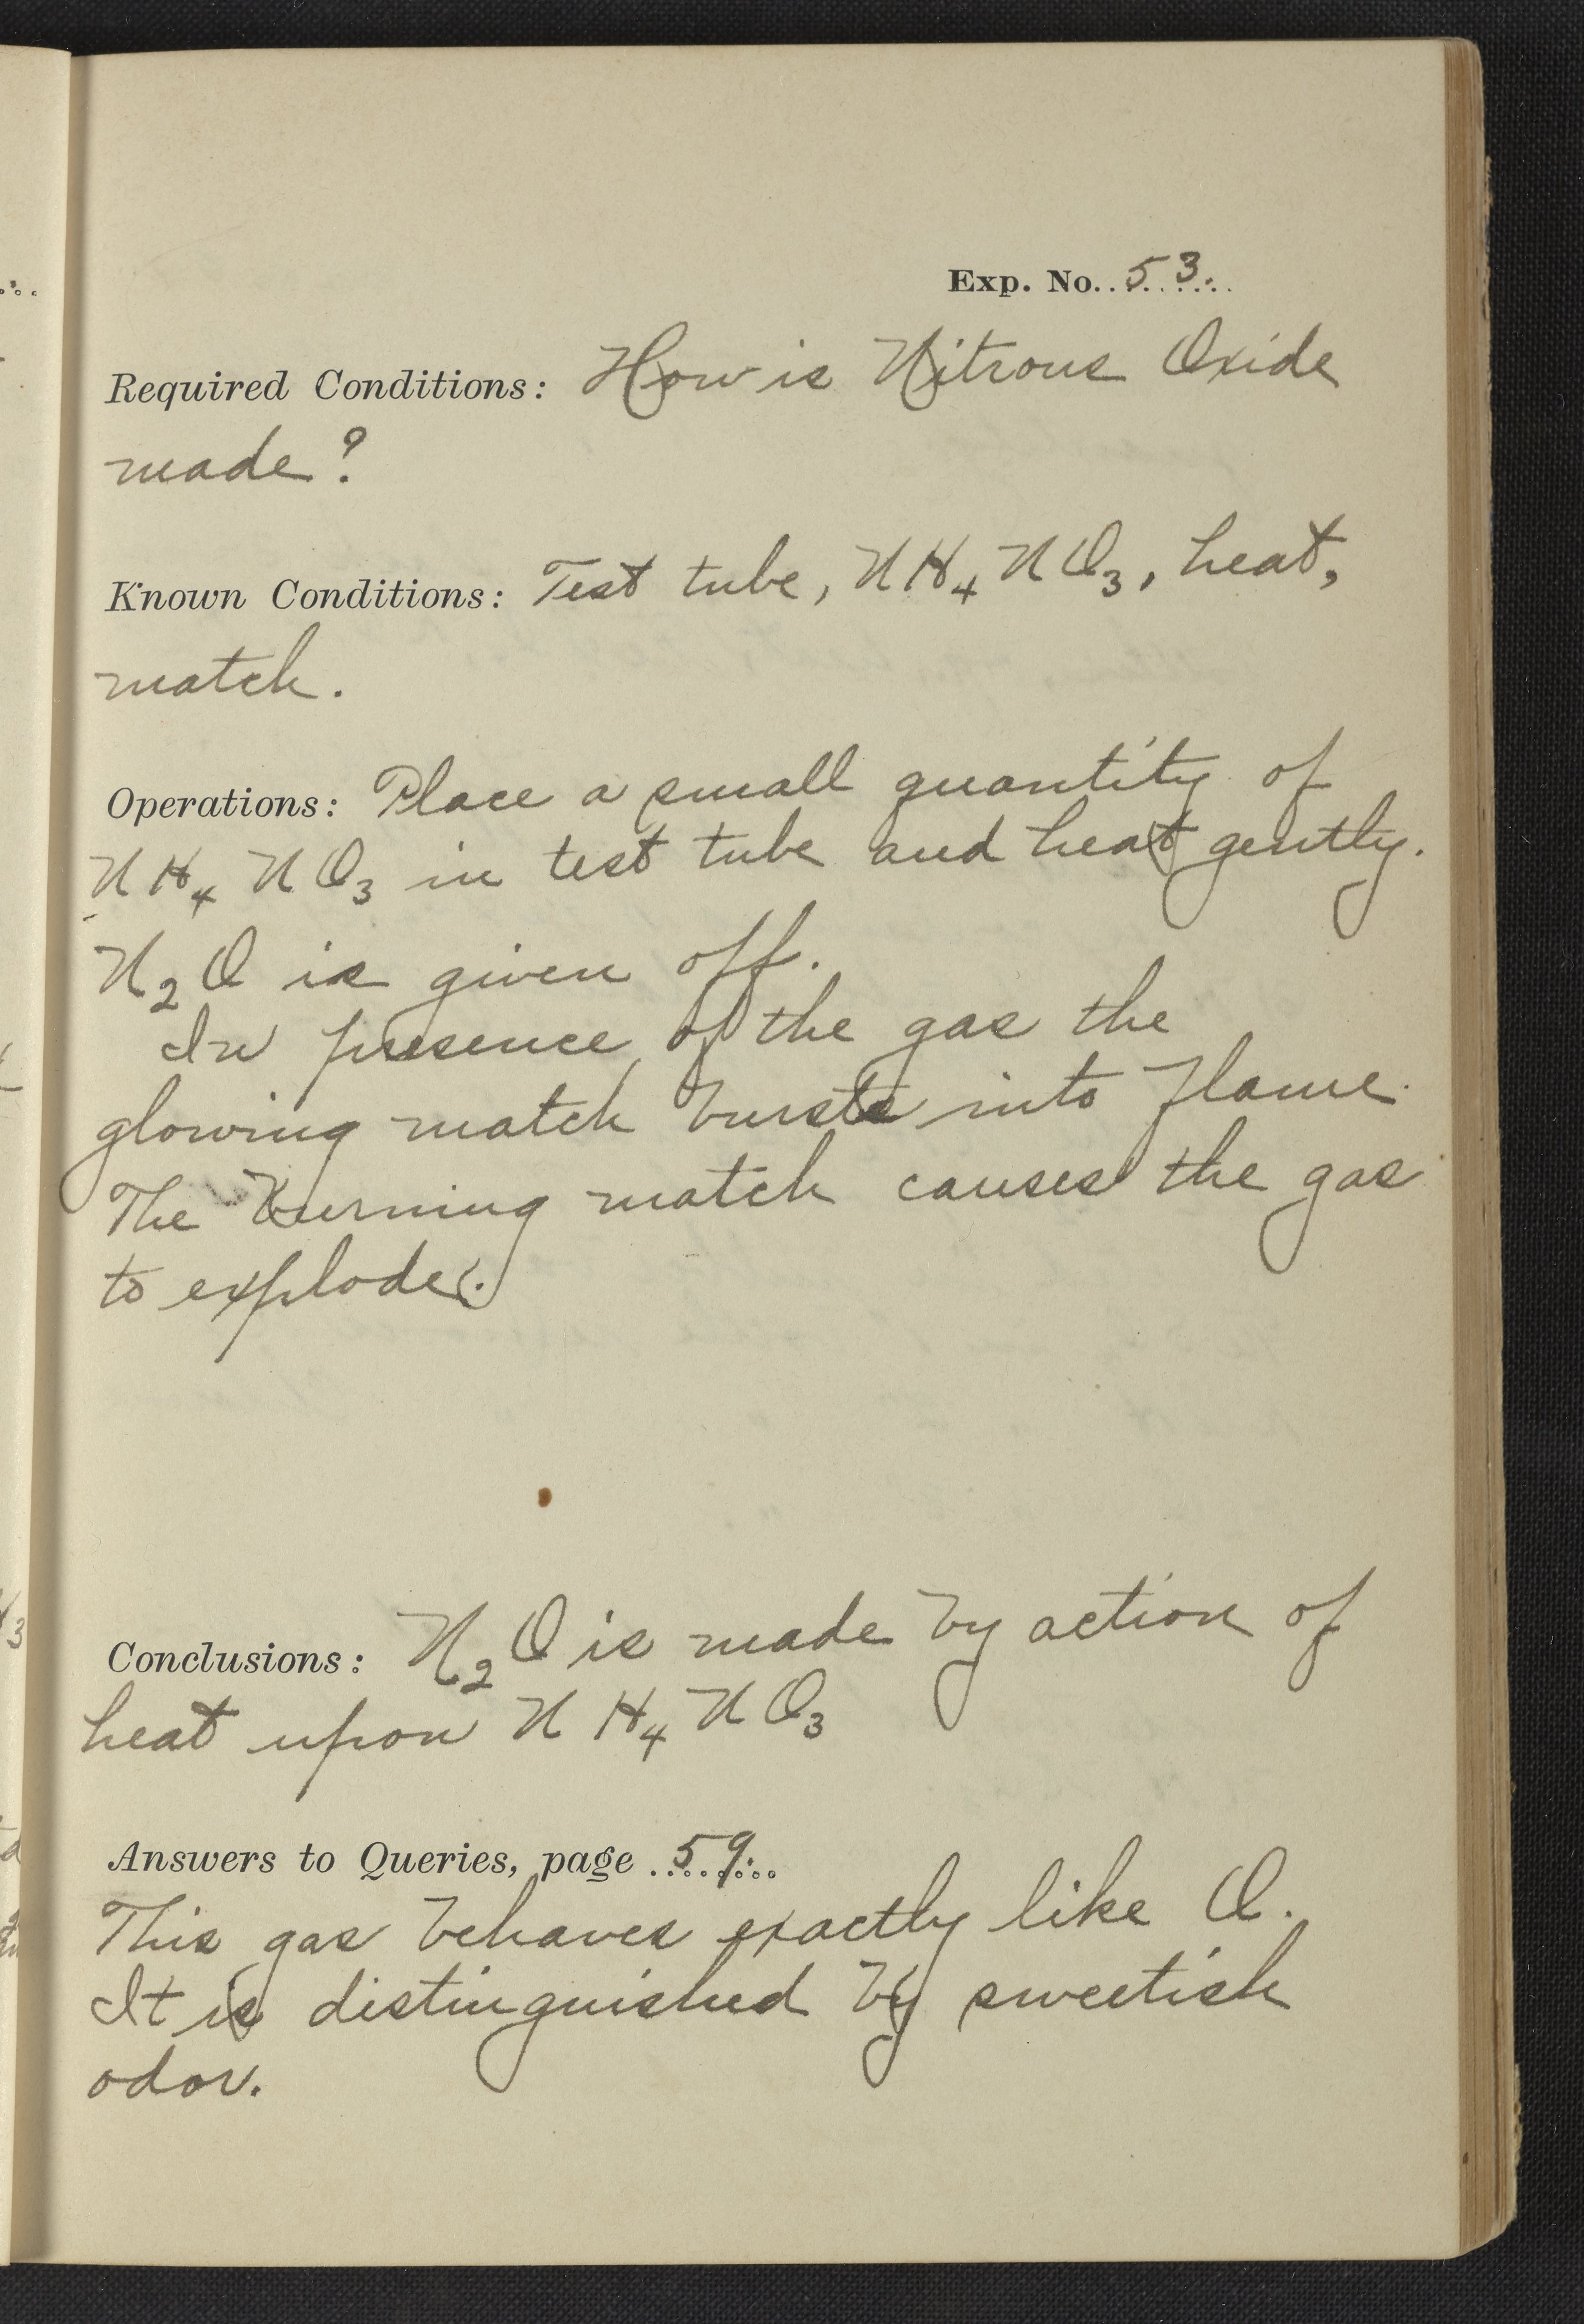 Exp. No. 53
Required Conditions: How is Nitrous Oxide
made?
Known Conditions: Test tube, NH₄NO₃, heat,
match.
Operations: Place a small quantity of
NH₄NO₃ in test tube and heat gently.
N₂O is given off.
In presence of the gas the
glowing match bursts into flame.
The burning match causes the gas
to explode.
Conclusions: N₂O is made by action of
heat upon NH₄NO₃
Answers to Queries, page 59
This gas behaves exactly like O.
It is distinguished by sweetish
odor.